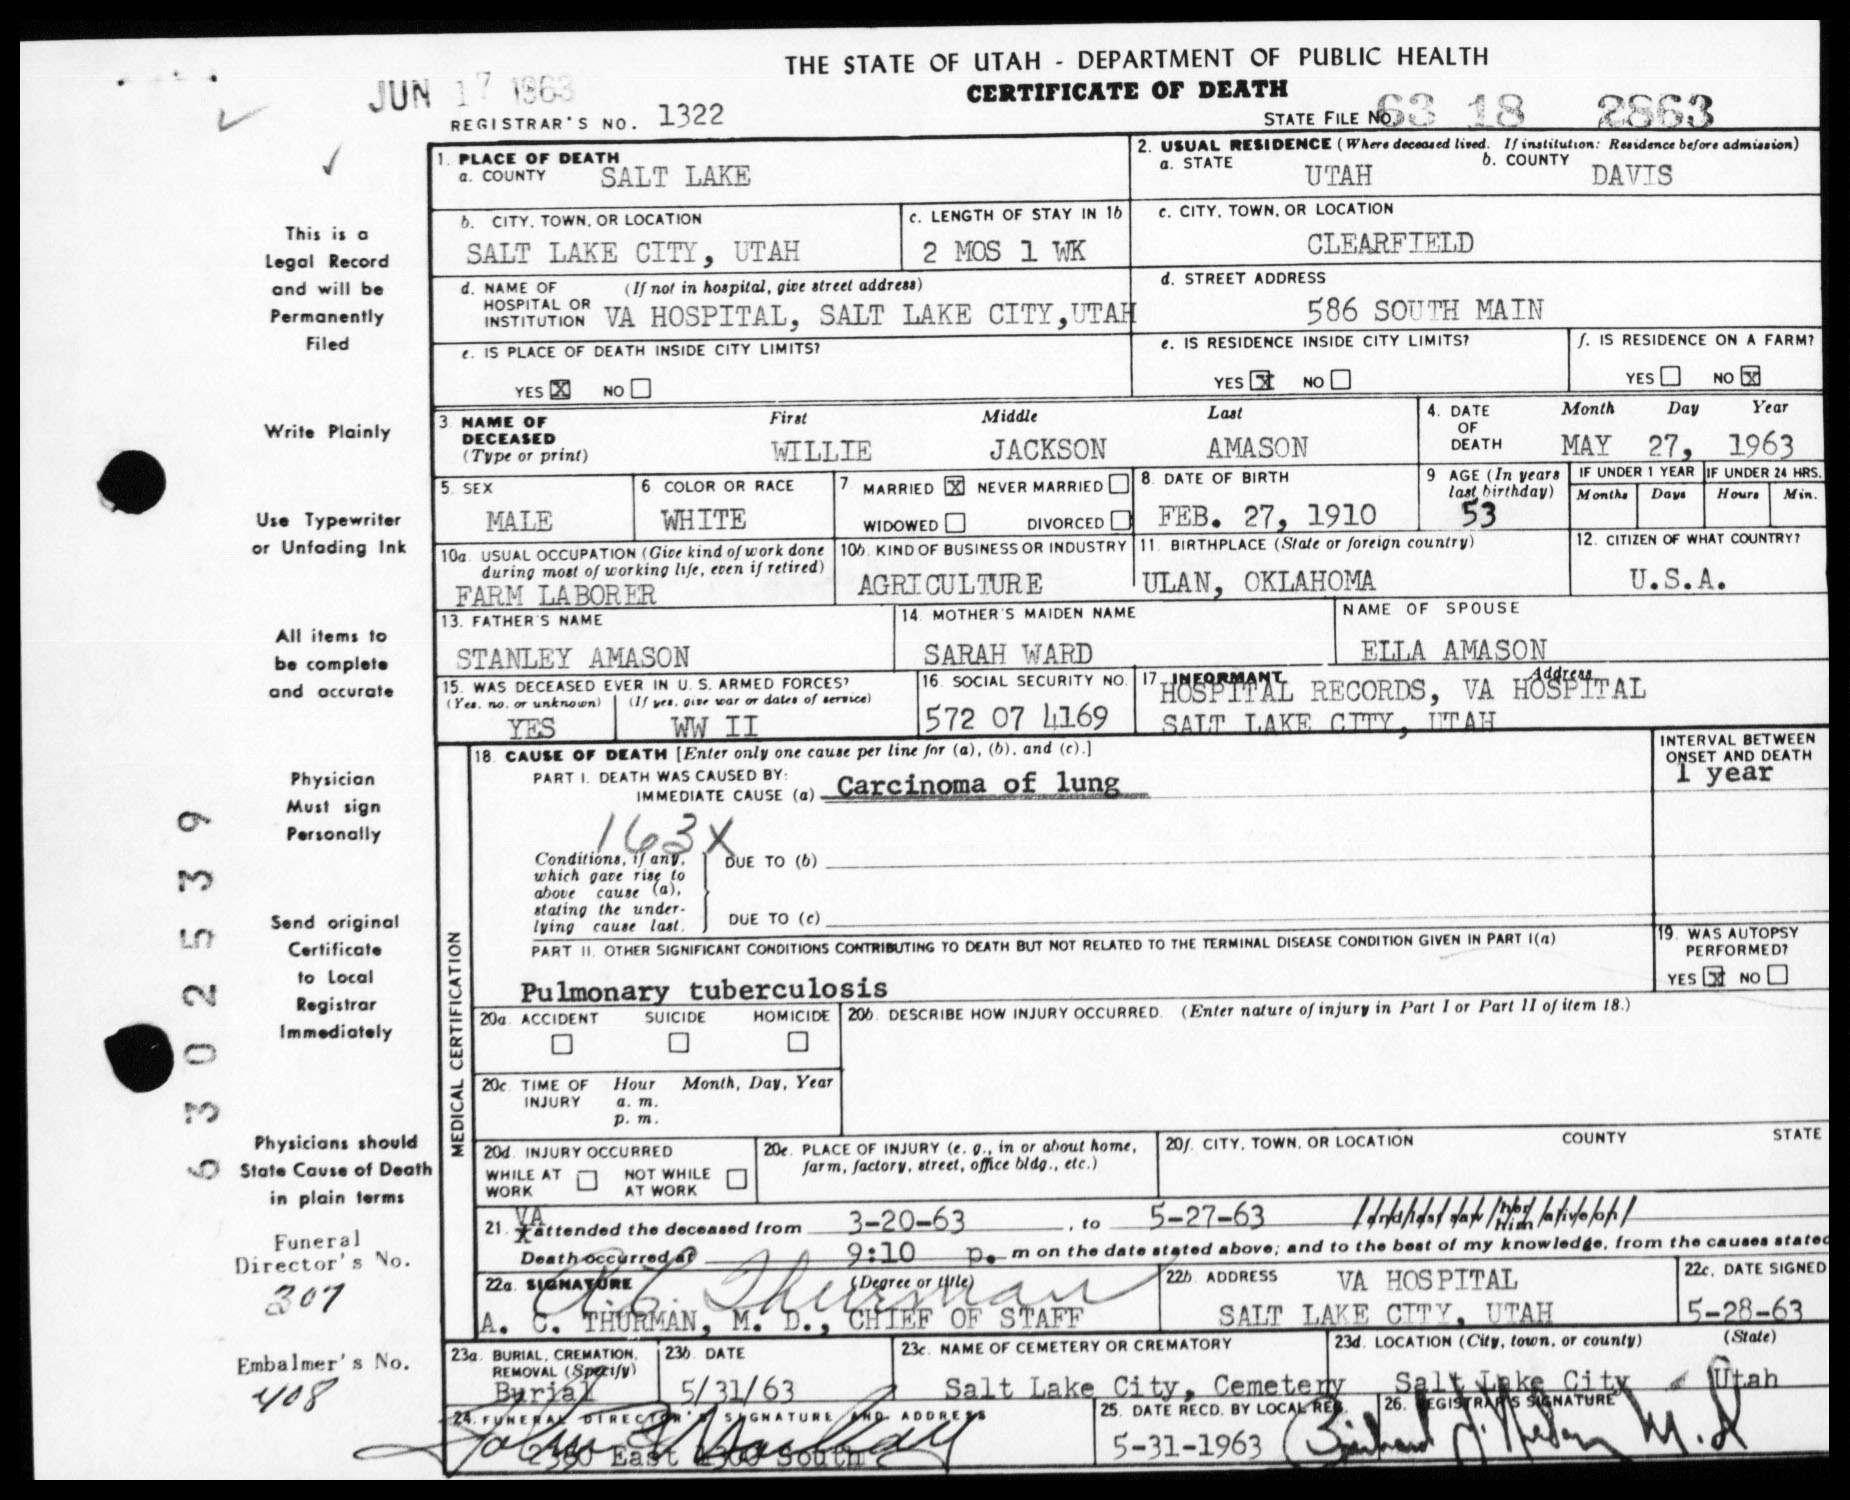 THE STATE OF UTAH - DEPARTMENT OF PUBLIC HEALTH
CERTIFICATE OF DEATH
JUN 17 1963
REGISTRAR'S NO. 1322
STATE FILE NO. 63 18 2863
This is a
Legal Record
and will be
Permanently
Filed
Write Plainly
Use Typewriter
or Unfading Ink
All items to
be complete
and accurate
Physician
Must sign
Personally
Send original
Certificate
to Local
Registrar
Immediately
Physicians should
State Cause of Death
in plain terms
Funeral
Director's No.
307
Embalmer's No.
408
6302539
1. PLACE OF DEATH
a. COUNTY SALT LAKE
b. CITY, TOWN, OR LOCATION
SALT LAKE CITY, UTAH
c. LENGTH OF STAY IN 1b
2 MOS 1 WK
d. NAME OF (If not in hospital, give street address)
HOSPITAL OR
INSTITUTION VA HOSPITAL, SALT LAKE CITY,UTAH
e. IS PLACE OF DEATH INSIDE CITY LIMITS?
YES X NO
2. USUAL RESIDENCE (Where deceased lived. If institution: Residence before admission)
a. STATE UTAH b. COUNTY DAVIS
c. CITY, TOWN, OR LOCATION
CLEARFIELD
d. STREET ADDRESS
586 SOUTH MAIN
e. IS RESIDENCE INSIDE CITY LIMITS?
YES X NO
f. IS RESIDENCE ON A FARM?
YES NO X
3. NAME OF DECEASED (Type or print)
First Middle Last
WILLIE JACKSON AMASON
4. DATE OF DEATH
Month Day Year
MAY 27, 1963
5. SEX
MALE
6. COLOR OR RACE
WHITE
7. MARRIED X NEVER MARRIED
WIDOWED DIVORCED
8. DATE OF BIRTH
FEB. 27, 1910
9 AGE (In years last birthday)
53
IF UNDER 1 YEAR
Months Days
IF UNDER 24 HRS.
Hours Min.
10a. USUAL OCCUPATION (Give kind of work done
during most of working life, even if retired)
FARM LABORER
10b. KIND OF BUSINESS OR INDUSTRY
AGRICULTURE
11. BIRTHPLACE (State or foreign country)
ULAN, OKLAHOMA
12. CITIZEN OF WHAT COUNTRY?
U.S.A.
13. FATHER'S NAME
STANLEY AMASON
14. MOTHER'S MAIDEN NAME
SARAH WARD
NAME OF SPOUSE
ELLA AMASON
15. WAS DECEASED EVER IN U. S. ARMED FORCES?
(Yes, no, or unknown) (If yes, give war or dates of service)
YES WW II
16. SOCIAL SECURITY NO.
572 07 4169
17. INFORMANT Address
HOSPITAL RECORDS, VA HOSPITAL
SALT LAKE CITY, UTAH
MEDICAL CERTIFICATION
18. CAUSE OF DEATH [Enter only one cause per line for (a), (b), and (c).]
PART I. DEATH WAS CAUSED BY:
IMMEDIATE CAUSE (a) Carcinoma of lung
INTERVAL BETWEEN
ONSET AND DEATH
1 year
163X
Conditions, if any,
which gave rise to
above cause (a),
stating the under-
lying cause last.
DUE TO (b)
DUE TO (c)
PART II. OTHER SIGNIFICANT CONDITIONS CONTRIBUTING TO DEATH BUT NOT RELATED TO THE TERMINAL DISEASE CONDITION GIVEN IN PART I(a)
Pulmonary tuberculosis
19. WAS AUTOPSY
PERFORMED?
YES X NO
20a. ACCIDENT SUICIDE HOMICIDE
20b. DESCRIBE HOW INJURY OCCURRED. (Enter nature of injury in Part I or Part II of item 18.)
20c. TIME OF INJURY Hour Month, Day, Year
a. m.
p. m.
20d. INJURY OCCURRED
WHILE AT WORK NOT WHILE AT WORK
20e. PLACE OF INJURY (e. g., in or about home,
farm, factory, street, office bldg., etc.)
20f. CITY, TOWN, OR LOCATION COUNTY STATE
21. VA attended the deceased from 3-20-63, to 5-27-63 and last saw her him alive on
Death occurred at 9:10 p. m on the date stated above; and to the best of my knowledge, from the causes stated
22a. SIGNATURE (Degree or title)
A. C. Thurman
A. C. THURMAN, M. D., CHIEF OF STAFF
22b. ADDRESS VA HOSPITAL
SALT LAKE CITY, UTAH
22c. DATE SIGNED
5-28-63
23a. BURIAL, CREMATION,
REMOVAL (Specify)
Burial
23b. DATE
5/31/63
23c. NAME OF CEMETERY OR CREMATORY
Salt Lake City, Cemetery
23d. LOCATION (City, town, or county) (State)
Salt Lake City Utah
24. FUNERAL DIRECTOR'S SIGNATURE AND ADDRESS
East South
25. DATE RECD. BY LOCAL REG.
5-31-1963
26. REGISTRAR'S SIGNATURE
M.D